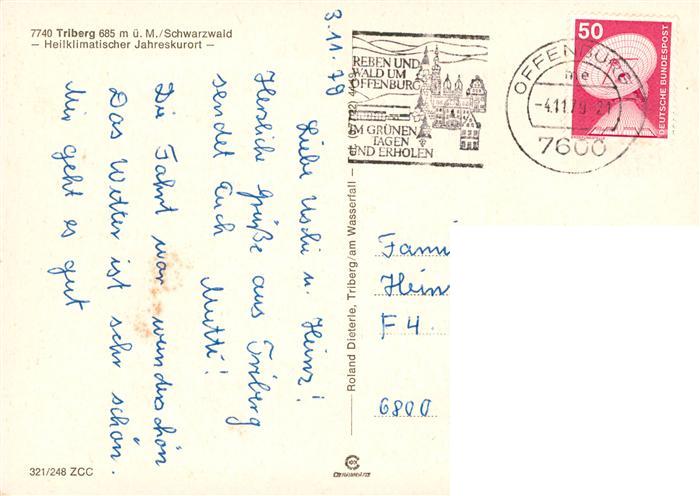 7740 Triberg 685 m ü. M./Schwarzwald
– Heilklimatischer Jahreskurort –
3.11.79
Liebe Uschi u. Heinz!
Herzliche Grüße aus Triberg
sendet Euch Mutti!
Die Fahrt war wunderschön
Das Wetter ist sehr schön.
Mir geht es gut
321/248 ZCC
Roland Dieterle, Triberg/am Wasserfall –
REBEN UND
WALD UM
OFFENBURG
IM GRÜNEN
TAGEN
UND ERHOLEN
OFFENBURG
-4.11.79-21
7600
50
DEUTSCHE BUNDESPOST
Fami
Hein
F 4.
6800